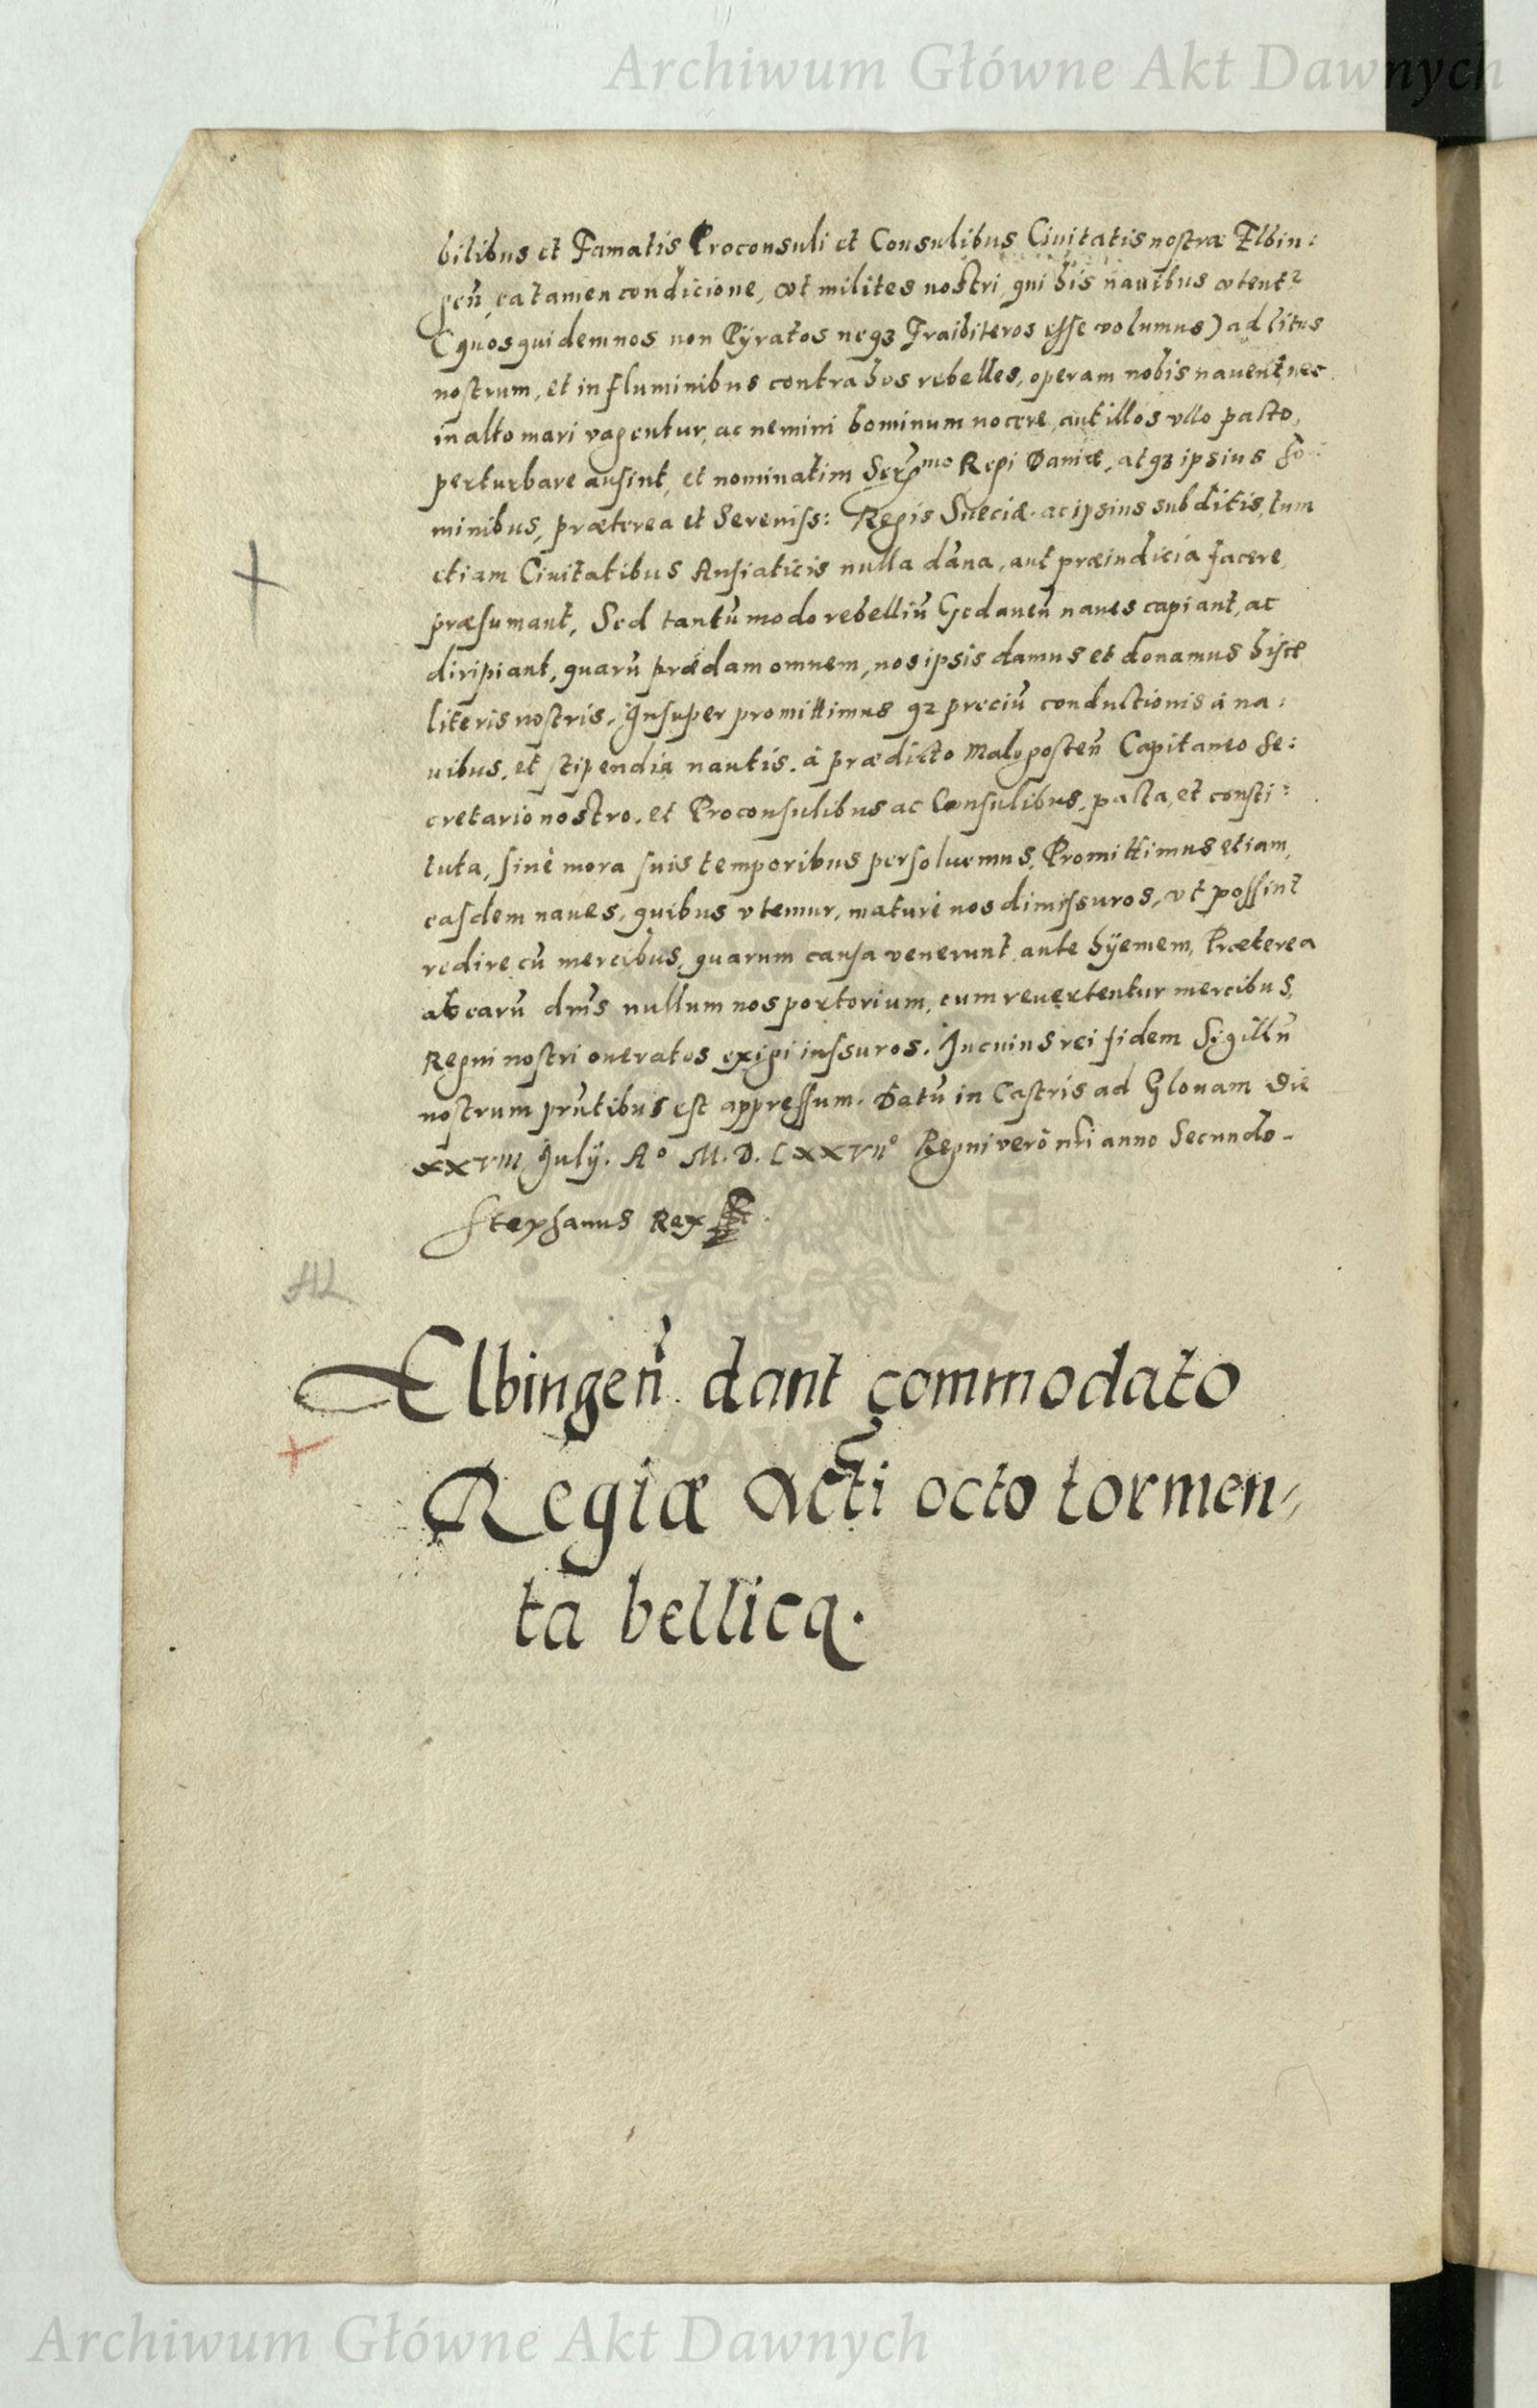 Archiwum Główne Akt Dawnych
bilibus et Famatis Proconsuli et Consulibus Ciuitatis nostræ Elbin:
geñ, ea tamen condicione, vt milites nostri, qui his nauibus vtent²
(quos quidem nos non Pÿratos neqȝ Fraibiteros esse volumus) ad litus
nostrum, et in fluminibus contra hos rebelles, operam nobis nauent, nec
in alto mari vagentur, ac nemini hominum nocere, aut illos vllo pacto,
perturbare ausint, et nominatim Serᵐᵒ Regi Daniæ, atqȝ ipsius ho:
minibus, præterea et Sereniss: Regis Sueciæ ac ipsius subditis, tum
etiam Ciuitatibus Ansiaticis nulla dãna, aut præiudicia facere
præsumant, Sed tantũmodo rebelliũ Gedaneñ naues capiant, ac
diripiant, quarũ prædam omnem, nos ipsis damus et donamus hisce
literis nostris. Insuper promittimus qȝ preciũ conductionis à na:
uibus, et stipendia nautis, à prædicto Malogosteñ Capitaneo Se:
cretario nostro, et Proconsulibus ac Consulibus, pacta, et consti:
tuta, sinè mora suis temporibus persoluemus, Promittimus etiam,
easdem naues, quibus vtemur, maturè nos dimissuros, vt possint
redire cũ mercibus, quarum causa venerunt ante hÿemem, Præterea
ab earũ dñis nullum nos portorium, cum reuertentur mercibus
Regni nostri oneratos exigi iussuros. In cuius rei fidem Sigillũ
nostrum pr̃ntibus est appressum. Datũ in Castris ad Glouam Die
xxviii Julÿ. Aº M. D. Lxxviiº Regni verò nr̃i anno Secundo
Stephanus Rex
AL
Elbingeñ dant commodato
Regiæ Mc̃ti octo tormen,,
ta bellica.
Archiwum Główne Akt Dawnych